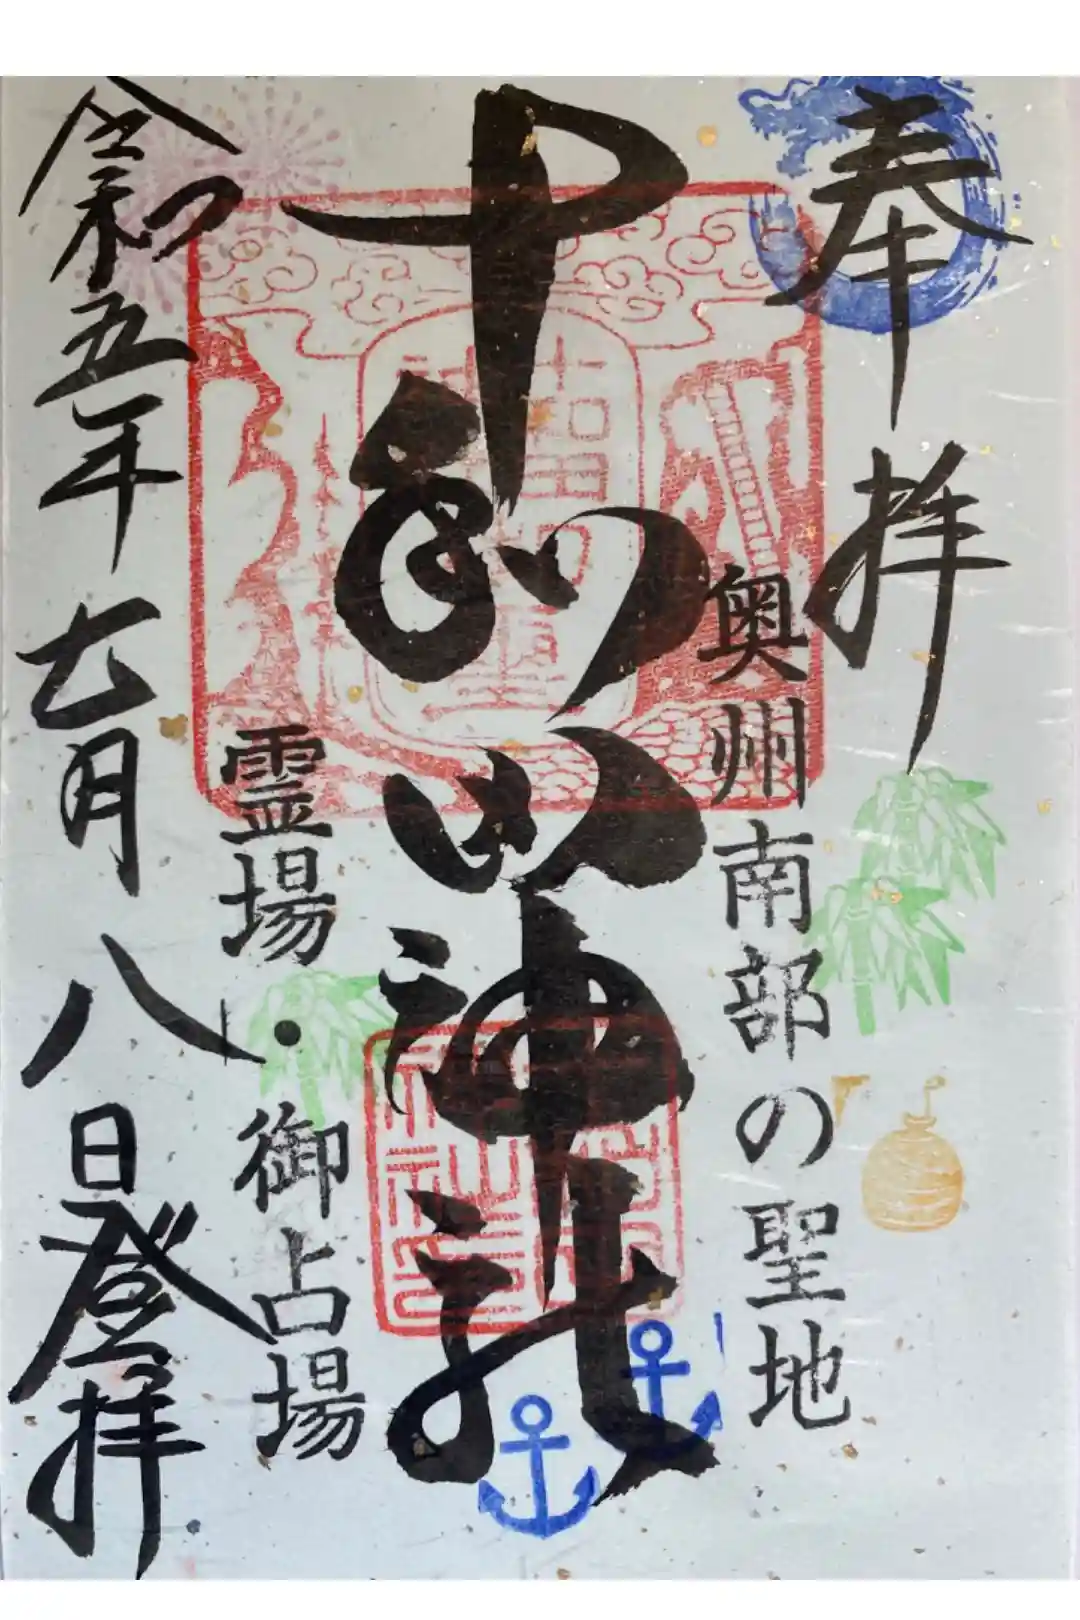 奉拝
奥州南部の聖地
十和田山神社
霊場・御占場
令和五年七月八日登拝